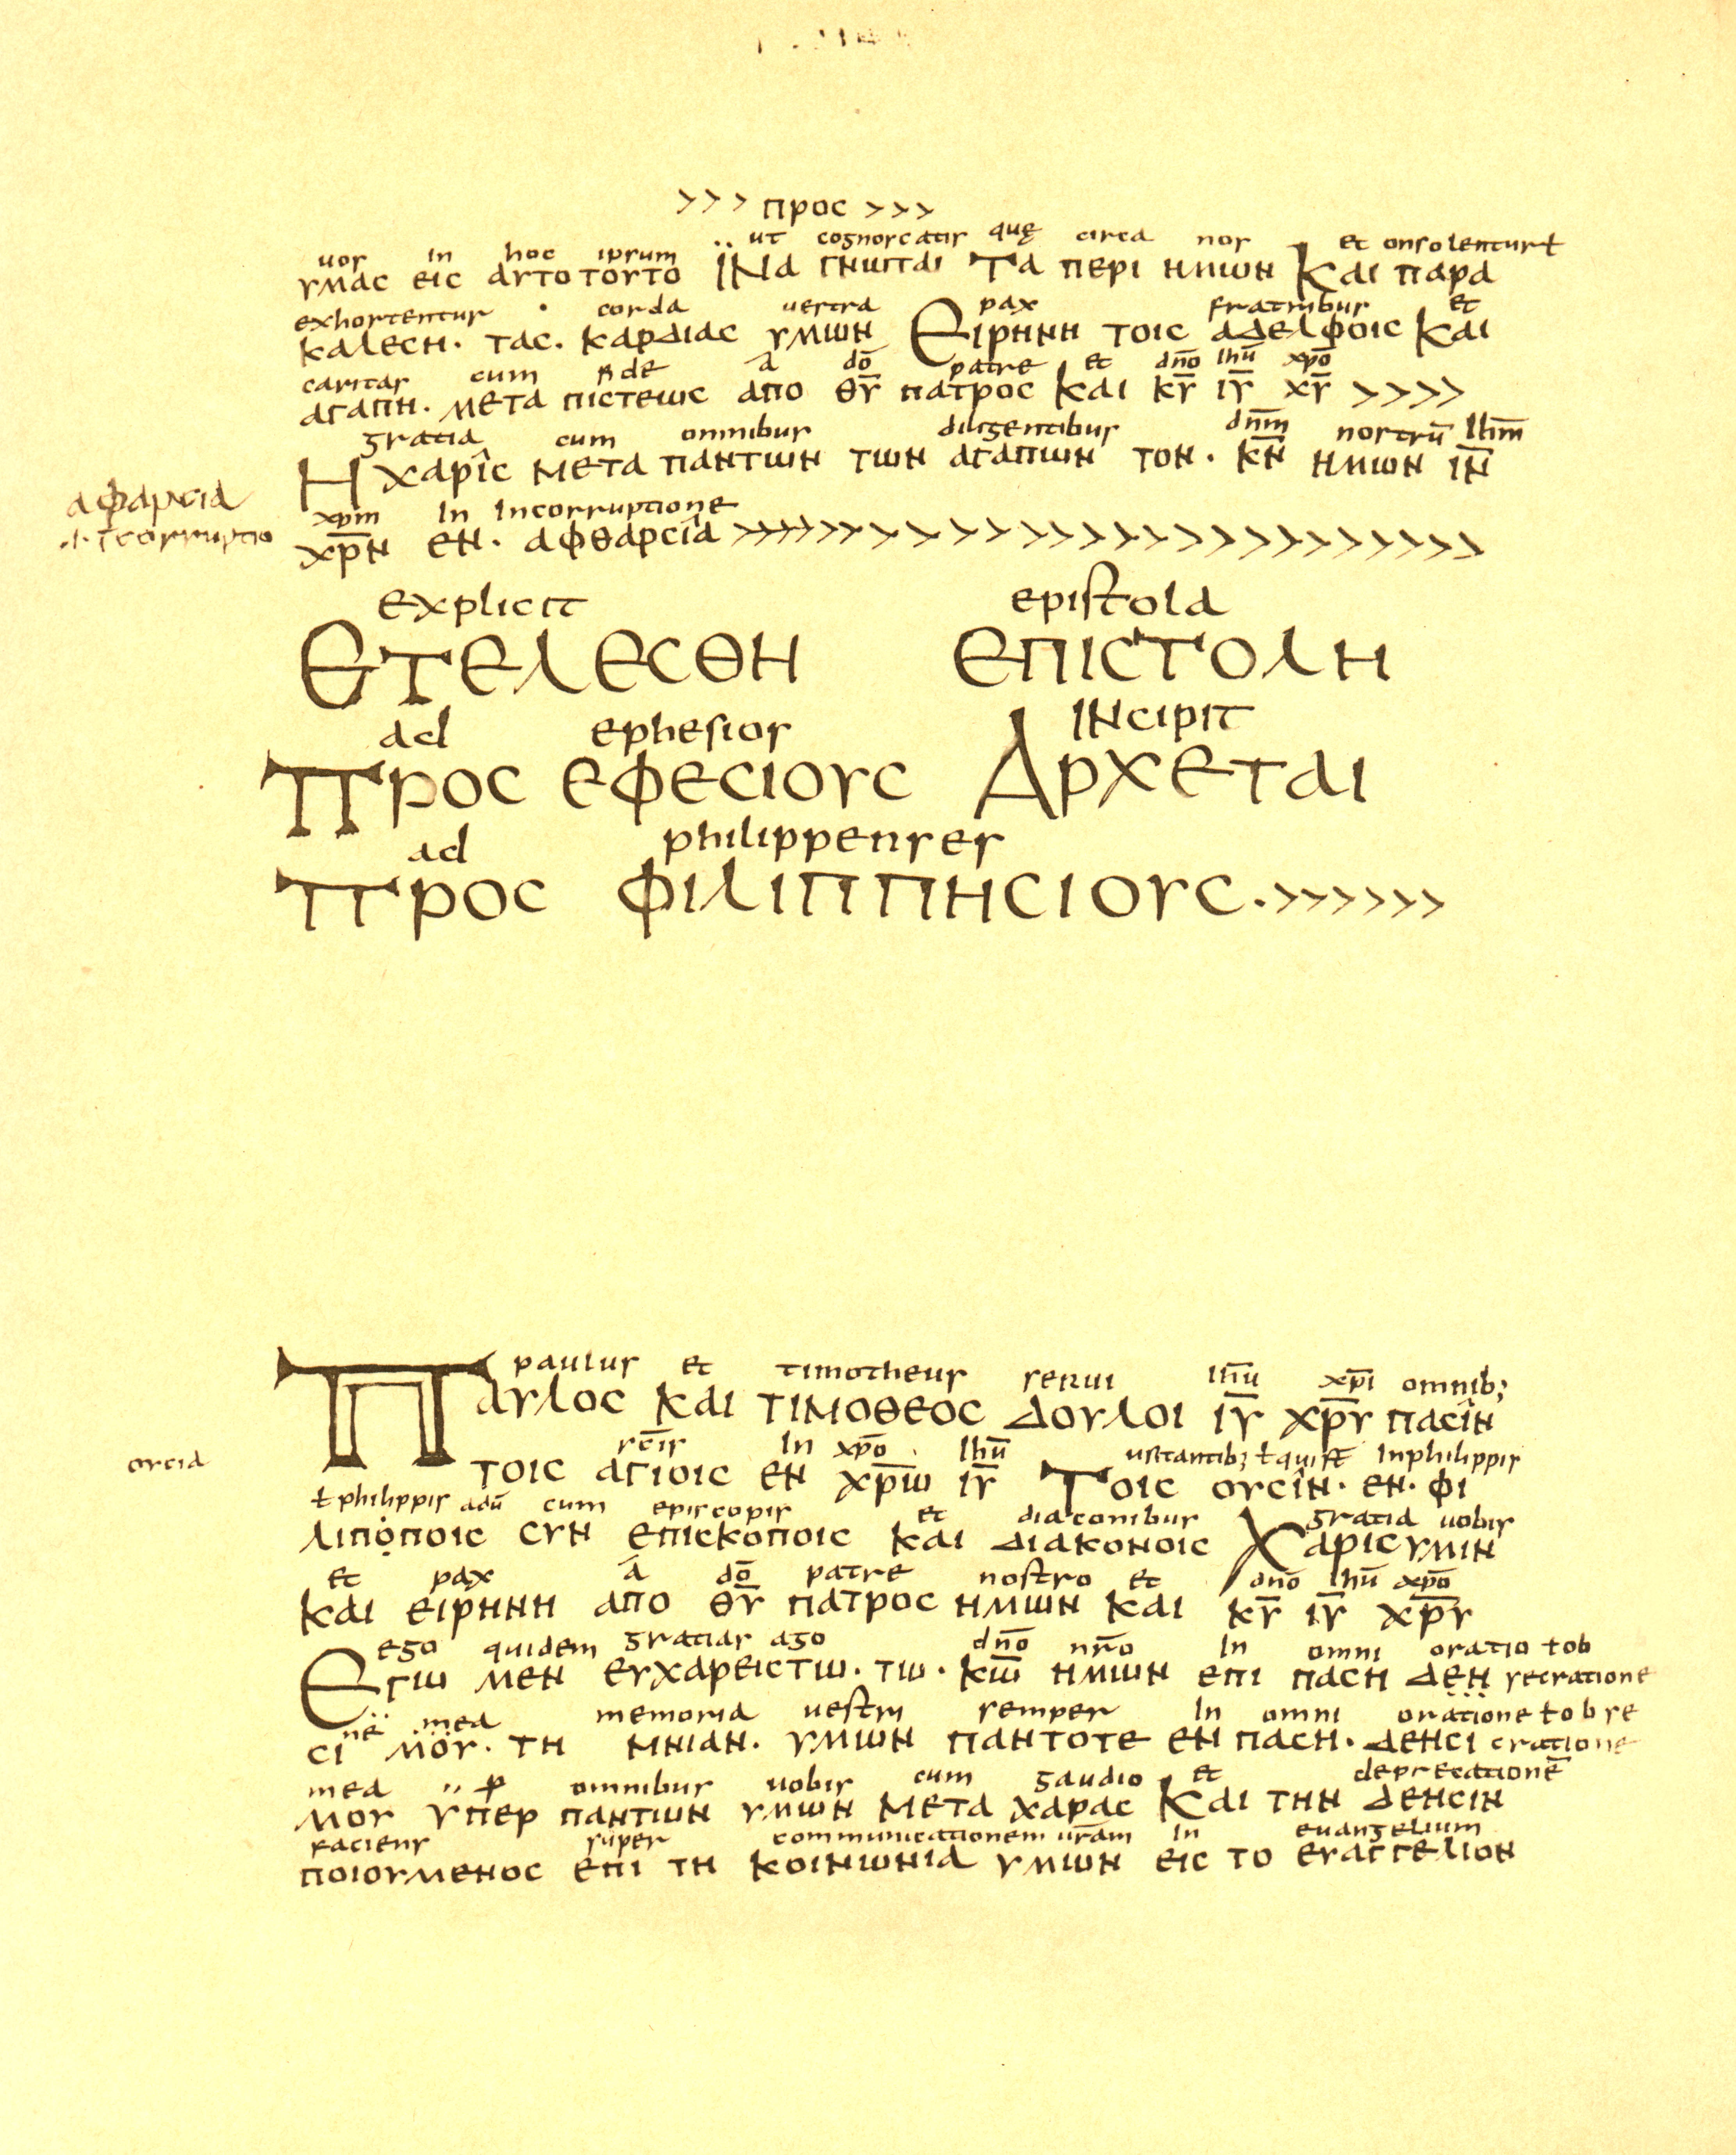 >>> προc >>>
uos in hoc ipsum ut cognoscatis quę circa nos et onsolentur ł
υμαc ειc αυτο τουτο ϊΝα γνωται Τα περι ημων Και παρα
exhortentur corda uestra pax fratribus et
καλεcη· ταc· καρδιαc υμων Ειρηνη τοιc αδελφοιc Και
caritas cum fide a do̅ patre et dn̅o ihu̅ xp̅o
αγαπη· μετα πιcτεωc απο θ̅υ̅ πατροc Και κ̅υ̅ ι̅υ̅ χ̅υ̅ >>>>
gratia cum omnibus diligentibus dn̅m nostru̅ ihm̅
Η χαριc μετα παντων των αγαπων τον· κ̅ν̅ ημων ι̅ν̅
αφαρcια
xpm in incorruptione
·i· Icorruptio
χ̅ρ̅ν̅ εν· αφθαρcια >>>>>>>>>>>>>>>>>>>>>>>>>
explicit epistola
Ετελεcθη επιcτολη
ad ephesios incipit
Προc εφεcιουc Αρχεται
ad philippenses
Προc φιλιππηcιουc·>>>>>>
paulus et timotheus serui ihu̅ xp̅i omnib;
Παυλοc Και τιμοθεοc δουλοι ι̅υ̅ χ̅ρ̅υ̅ παcιν
sc̅is in xp̅o ihu̅ ustantib; ł qui st̅ inphilippis
ουcια
τοιc αγιοιc εν χ̅ρ̅ω̅ ι̅υ̅ Τοιc ουcιν· εν· φι
ł philippis adu̅ cum episcopis et diaconibus gratia uobis
λιποποιc cυν επιcκοποιc και διακονοιc Χαριc υμιν
et pax a do̅ patre nostro et dno̅ ihu̅ xp̅o
και ειρηνη απο θ̅υ̅ πατροc ημων και κ̅υ̅ ι̅υ̅ χ̅ρ̅υ̅
ego quidem gratias ago dn̅o nr̅o in omni oratio ł ob
Εγω μεν ευχαρειcτω· τω· κ̅ω̅ ημων επι παcη δεη secratione
ne mea memoria uestri semper in omni oratione ł ob se
cι μου· τη μνιαν· υμων παντοτε εν παcη· δεηcι cratione
mea p̅ omnibus uobis cum gaudio et deprecatione̅
μου υπερ παντων υμων Μετα χαραc Και την δεηcιν
faciens super communicationem ur̅am in euangelium
ποιουμενοc επι τη κοινωνια υμων ειc το ευαγγελιον